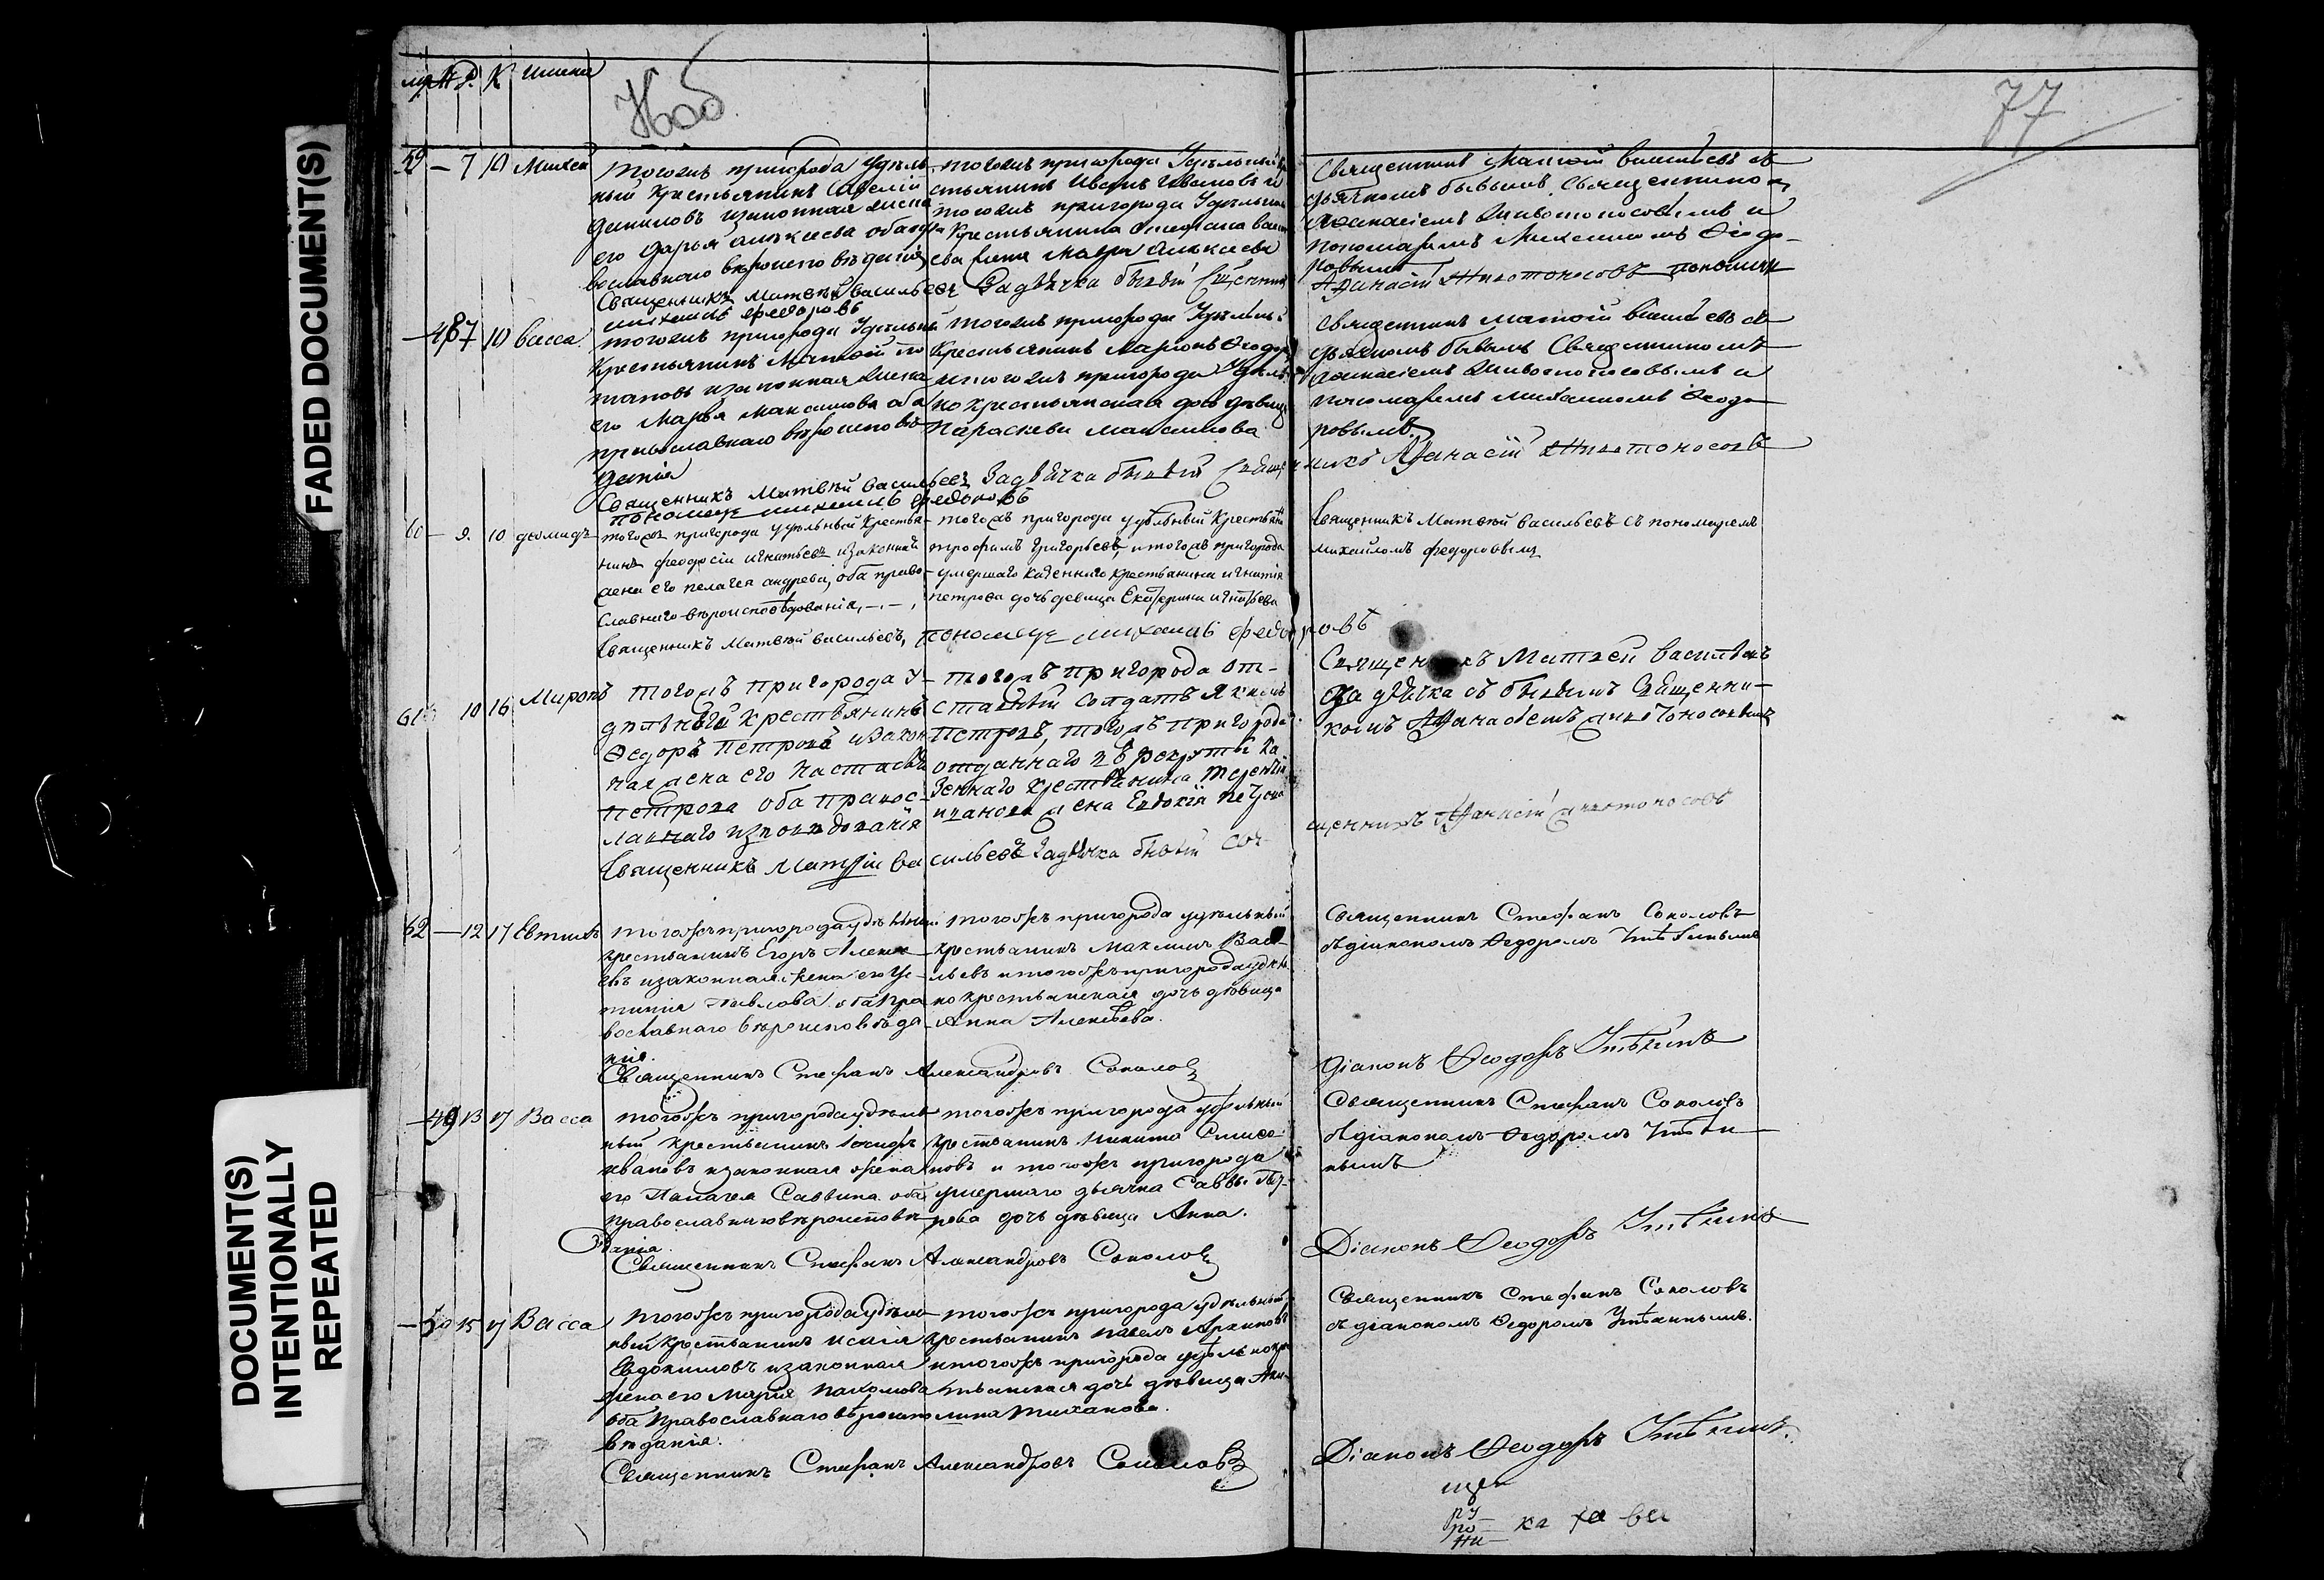 FADED DOCUMENT(S)
DOCUMENT(S)
INTENTIONALLY
REPEATED
М Ж Р. К имена
77
59 — 7 10 Михей
тогожъ пригорода удѣль
ный крестьянинъ Савелій
Даниловъ и законная жена
его Дарья Алексеева оба пра
вославнаго вѣроисповѣданія
Священникъ Матвѣй Васильевъ
Михаилъ Федоровъ
тогожъ пригорода Удѣльный кре
стьянинъ Иванъ Ивановъ и
тогожъ пригорода Удѣльнаго
Крестьянина Стефана Василь
ева жена Мавра Алексеева
Задьячка бывый Священник
Священникъ Матвѣй Васильевъ съ
дьячкомъ бывымъ Священникомъ
Афанасіемъ Животоносовымъ и
пономаремъ Михаиломъ Ѳеодо-
ровымъ
Афанасій Животоносовъ пономарь
— 48 7 10 Васса
тогожъ пригорода Удѣльный
Крестьянинъ Матвѣй По
таповъ и законная жена
его Марья Максимова оба
православнаго вѣроисповѣ
данія
Священникъ Матвѣй Васильевъ Задьячка бывый Священ
пономарь михаилъ федоровъ
тогожъ пригорода Удѣльный
Крестьянинъ Ларіонъ Ѳеодор
и тогожъ пригорода Удѣль
но крестьянская дочь девица
Параскева Максимова
Священникъ Матвѣй Васильевъ съ
дьячкомъ бывымъ Священникомъ
Афанасіемъ Животоносовымъ и
пономаремъ Михаиломъ Ѳеодо
ровымъ.
никъ Афанасій Животоносовъ
60 — 9. 10 Диомидъ
тогожъ пригорода удѣльный крестья-
нинъ феодосій игнатьевъ изаконная
жена его пелагея андрева, оба право-
славнаго вѣроисповѣдованія, —. — ,
Священникъ Матвѣй васильевъ, пономарь михаилъ федоровъ
тогожъ пригорода удѣльный крестьянинъ
трофимъ григорьевъ, итогожъ пригорода
умершаго казеннаго крестьянина игнатія
петрова дочь девица Екатерина игнатьева
Священникъ Матвѣй васильевъ съ пономаремъ
михайломъ федоровымъ
61 10 16 Миронъ
тогожъ пригорода у-
дѣлный крестьянинъ
Ѳедоръ Петровъ изакон
ная жена его Настасья
Петрова оба правос-
лавнаго изповѣдованія
Священникъ Матѳій васильевъ Задьячка бывый Свя-
тогожъ пригорода от-
ставный солдатъ Якимъ
Петровъ, тогожъ пригорода
отданнаго въ рекруты ка
зеннаго крестьянина Терентія
иванова жена Евдокія Петрова
Священникъ Матвей василевъ
За дьячка съ бывымъ Священни-
комъ Афанасіемъ животоносовымъ
щенникъ Афанасій животоносовъ
62 — 12 17 Евтихій
тогожъ пригорода удѣльный
крестьянинъ Егоръ Алексѣ
евъ изаконная жена его Ус-
тинія Павлова оба пра
вославнаго вѣроисповѣда
нія.
Священникъ Стефанъ Александровъ Соколовъ
тогожъ пригорода удѣльный
крестьянинъ Максимъ Васи-
льевъ итогожъ пригорода удѣль
но крестьянская дочь дѣвица
Анна Алексѣева.
Священникъ Стефанъ Соколовъ
съ діакономъ Ѳедоромъ
Діаконъ Ѳеодоръ
— 49 13 17 Васса
тогожъ пригорода удѣль
ный крестьянинъ Іосифъ
Ивановъ изаконная жена
его Палагея Саввина оба
православнаго вѣроисповѣ
данія.
Священникъ Стефанъ Александровъ Соколовъ
тогожъ пригорода удѣльный
крестьянинъ Никита Симео
новъ и тогожъ пригорода
умершаго дьячка Саввы Пет-
рова дочь дѣвица Анна.
Священникъ Стефанъ Соколовъ
съ діакономъ Ѳедоромъ
Діаконъ Ѳеодоръ
— 50 15 17 Васса
тогожъ пригорода удѣль
ный крестьянинъ Исаія
Евдокимовъ изаконная
жена его Марія Пахомова
оба Православнаго вѣроиспо
вѣданія.
Священникъ Стефанъ Александровъ Соколовъ
тогожъ пригорода удѣльный
крестьянинъ Павелъ Архиповъ
итогожъ пригорода удѣльнокре
стьянская дочь дѣвица Аку-
лина Тиханова.
Священникъ Стефанъ Соколовъ
съ діакономъ Ѳедоромъ
Діаконъ Ѳеодоръ
щен
ру
ро — ка ха ва
ни